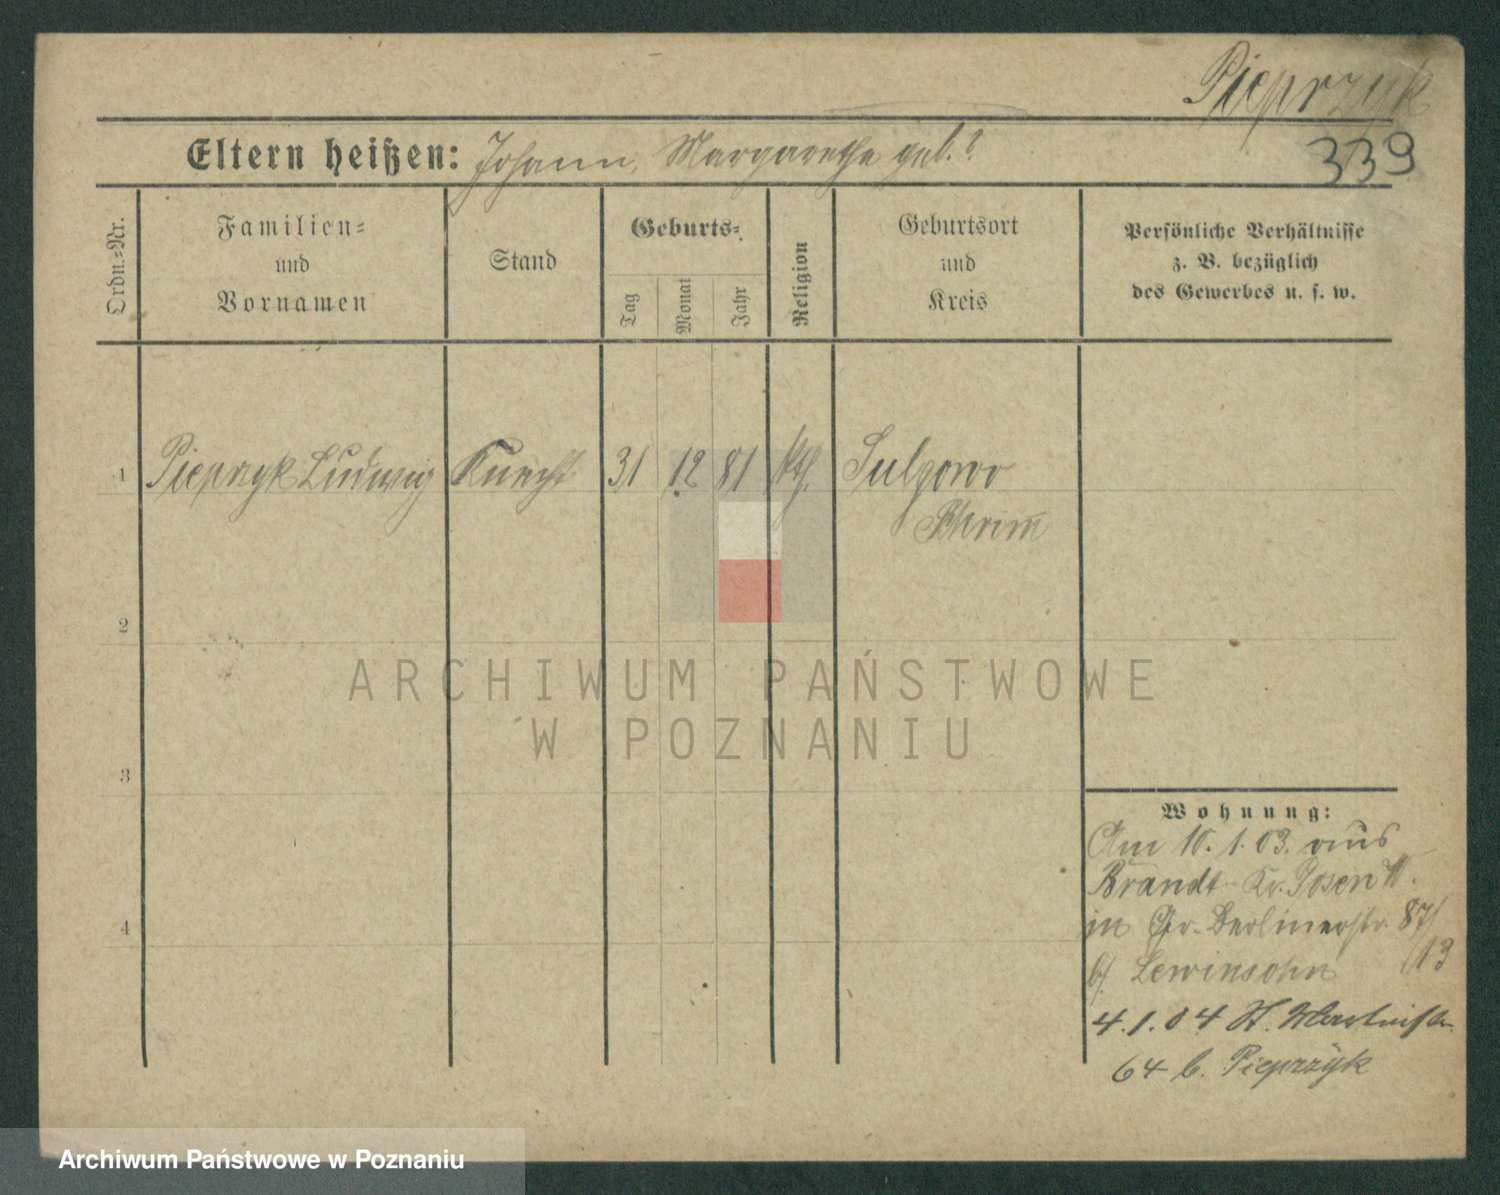 Pieprzyk
339
Eltern heißen: Johann, Margarethe geb. ?
Ordn.=Nr.
Familien=
und
Vornamen
Stand
Geburts=
Tag
Monat
Jahr
Religion
Geburtsort
und
Kreis
Persönliche Verhältnisse
z. B. bezüglich
des Gewerbes u. s. w.
1 Pieprzyk Ludwig Knecht 31 12 81 kth. Sulgowo
Schrim
2
3
4
Wohnung:
Am 10.1.03. aus
Brandt Kr. Posen W.
in Gr. Berlinerstr. 87/
b/ Lewinsohn /13
4.1.04 St. Martinstr.
64 b. Pieprzyk
ARCHIWUM PAŃSTWOWE
W POZNANIU
Archiwum Państwowe w Poznaniu